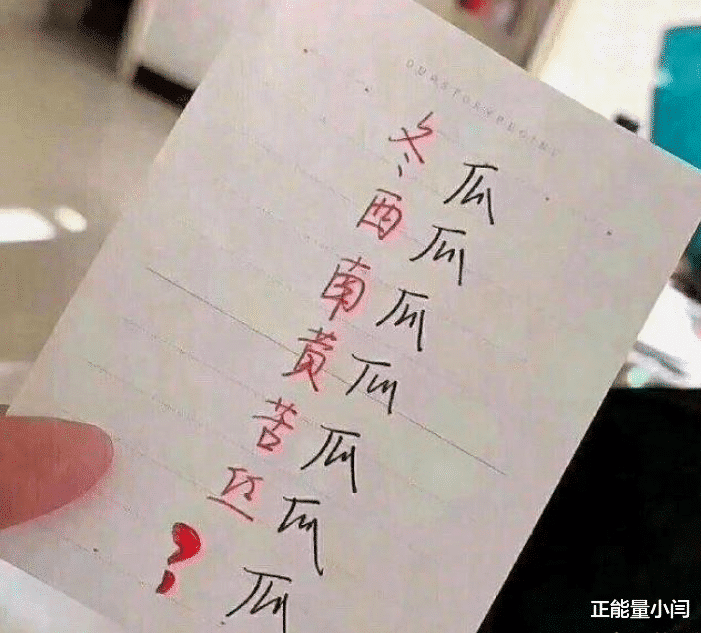 冬瓜
西瓜
南瓜
黄瓜
苦瓜
丝瓜
?瓜
正能量小闫